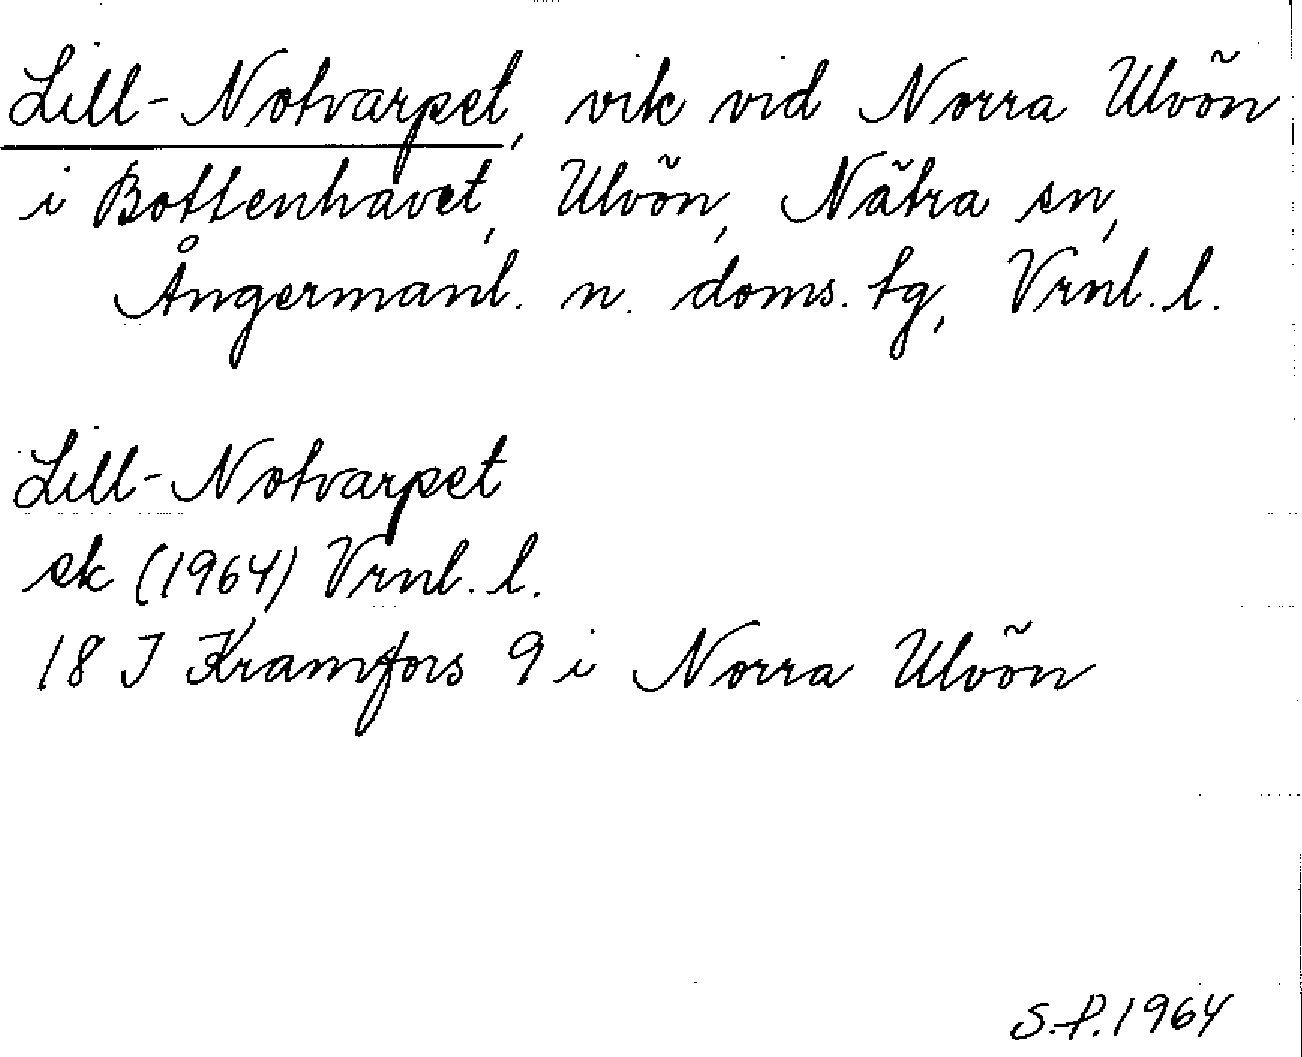 Lill-Notvarpet, vik vid Norra Ulvön
i Bottenhavet, Ulvön, Nätra sn,
Ångermanl. n. doms. tg, Vrnl. l.
Lill-Notvarpet
ek (1964) Vrnl. l.
18 I Kramfors 9 i Norra Ulvön
S.P. 1964